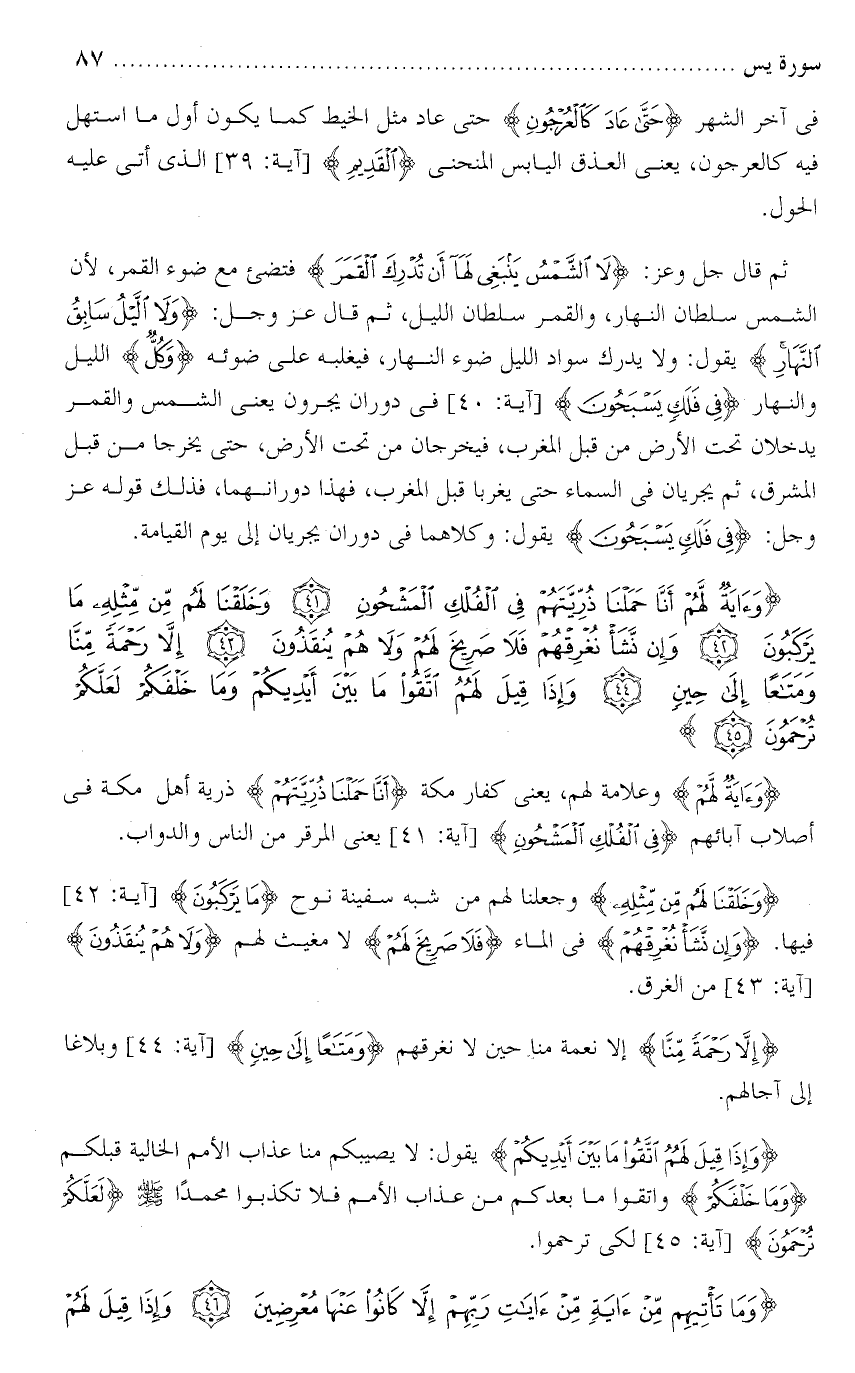 سورة يس ........................................................................... ٨٧
فى آخر الشهر ﴿حَتَّىٰ عَادَ كَٱلْعُرْجُونِ﴾ حتى عاد مثل الخيط كما يكون أول ما استهل
فيه كالعرجون، يعنى العذق اليابس المنحنى ﴿ٱلْقَدِيمِ﴾ [آية: ٣٩] الذى أتى عليه
الحول.
ثم قال جل وعز: ﴿لَا ٱلشَّمْسُ يَنۢبَغِى لَهَآ أَن تُدْرِكَ ٱلْقَمَرَ﴾ فتضئ مع ضوء القمر، لأن
الشمس سلطان النهار، والقمر سلطان الليل، ثم قال عز وجل: ﴿وَلَا ٱلَّيْلُ سَابِقُ
ٱلنَّهَارِ﴾ يقول: ولا يدرك سواد الليل ضوء النهار، فيغلبه على ضوئه ﴿وَكُلٌّ﴾ الليل
والنهار ﴿فِى فَلَكٍ يَسْبَحُونَ﴾ [آية: ٤٠] فى دوران يجرون يعنى الشمس والقمر
يدخلان تحت الأرض من قبل المغرب، فيخرجان من تحت الأرض، حتى يخرجا من قبل
المشرق، ثم يجريان فى السماء حتى يغربا قبل المغرب، فهذا دورانهما، فذلك قوله عز
وجل: ﴿فِى فَلَكٍ يَسْبَحُونَ﴾ يقول: وكلاهما فى دوران يجريان إلى يوم القيامة.
﴿وَءَايَةٌ لَّهُمْ أَنَّا حَمَلْنَا ذُرِّيَّتَهُمْ فِى ٱلْفُلْكِ ٱلْمَشْحُونِ ٤١ وَخَلَقْنَا لَهُم مِّن مِّثْلِهِۦ مَا
يَرْكَبُونَ ٤٢ وَإِن نَّشَأْ نُغْرِقْهُمْ فَلَا صَرِيخَ لَهُمْ وَلَا هُمْ يُنقَذُونَ ٤٣ إِلَّا رَحْمَةً مِّنَّا
وَمَتَٰعًا إِلَىٰ حِينٍ ٤٤ وَإِذَا قِيلَ لَهُمُ ٱتَّقُوا۟ مَا بَيْنَ أَيْدِيكُمْ وَمَا خَلْفَكُمْ لَعَلَّكُمْ
تُرْحَمُونَ ٤٥﴾
﴿وَءَايَةٌ لَّهُمْ﴾ وعلامة لهم، يعنى كفار مكة ﴿أَنَّا حَمَلْنَا ذُرِّيَّتَهُمْ﴾ ذرية أهل مكة فى
أصلاب آبائهم ﴿فِى ٱلْفُلْكِ ٱلْمَشْحُونِ﴾ [آية: ٤١] يعنى المرقر من الناس والدواب.
﴿وَخَلَقْنَا لَهُم مِّن مِّثْلِهِۦ﴾ وجعلنا لهم من شبه سفينة نوح ﴿مَا يَرْكَبُونَ﴾ [آية: ٤٢]
فيها. ﴿وَإِن نَّشَأْ نُغْرِقْهُمْ﴾ فى الماء ﴿فَلَا صَرِيخَ لَهُمْ﴾ لا مغيث لهم ﴿وَلَا هُمْ يُنقَذُونَ﴾
[آية: ٤٣] من الغرق.
﴿إِلَّا رَحْمَةً مِّنَّا﴾ إلا نعمة منا حين لا نغرقهم ﴿وَمَتَٰعًا إِلَىٰ حِينٍ﴾ [آية: ٤٤] وبلاغا
إلى آجالهم.
﴿وَإِذَا قِيلَ لَهُمُ ٱتَّقُوا۟ مَا بَيْنَ أَيْدِيكُمْ﴾ يقول: لا يصيبكم منا عذاب الأمم الخالية قبلكم
﴿وَمَا خَلْفَكُمْ﴾ واتقوا ما بعدكم من عذاب الأمم فلا تكذبوا محمدًا ﷺ ﴿لَعَلَّكُمْ
تُرْحَمُونَ﴾ [آية: ٤٥] لكى ترحموا.
﴿وَمَا تَأْتِيهِم مِّنْ ءَايَةٍ مِّنْ ءَايَٰتِ رَبِّهِمْ إِلَّا كَانُوا۟ عَنْهَا مُعْرِضِينَ ٤٦ وَإِذَا قِيلَ لَهُمْ